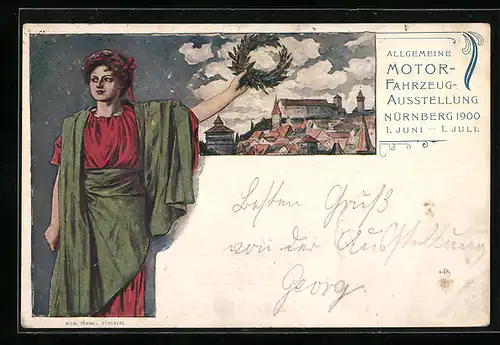 ALLGEMEINE
MOTOR-
FAHRZEUG-
AUSSTELLUNG
NÜRNBERG 1900
1. JUNI — 1. JULI.
Besten Gruß
von der Ausstellung
Georg.
WILH. TÜMMEL, NÜRNBERG.